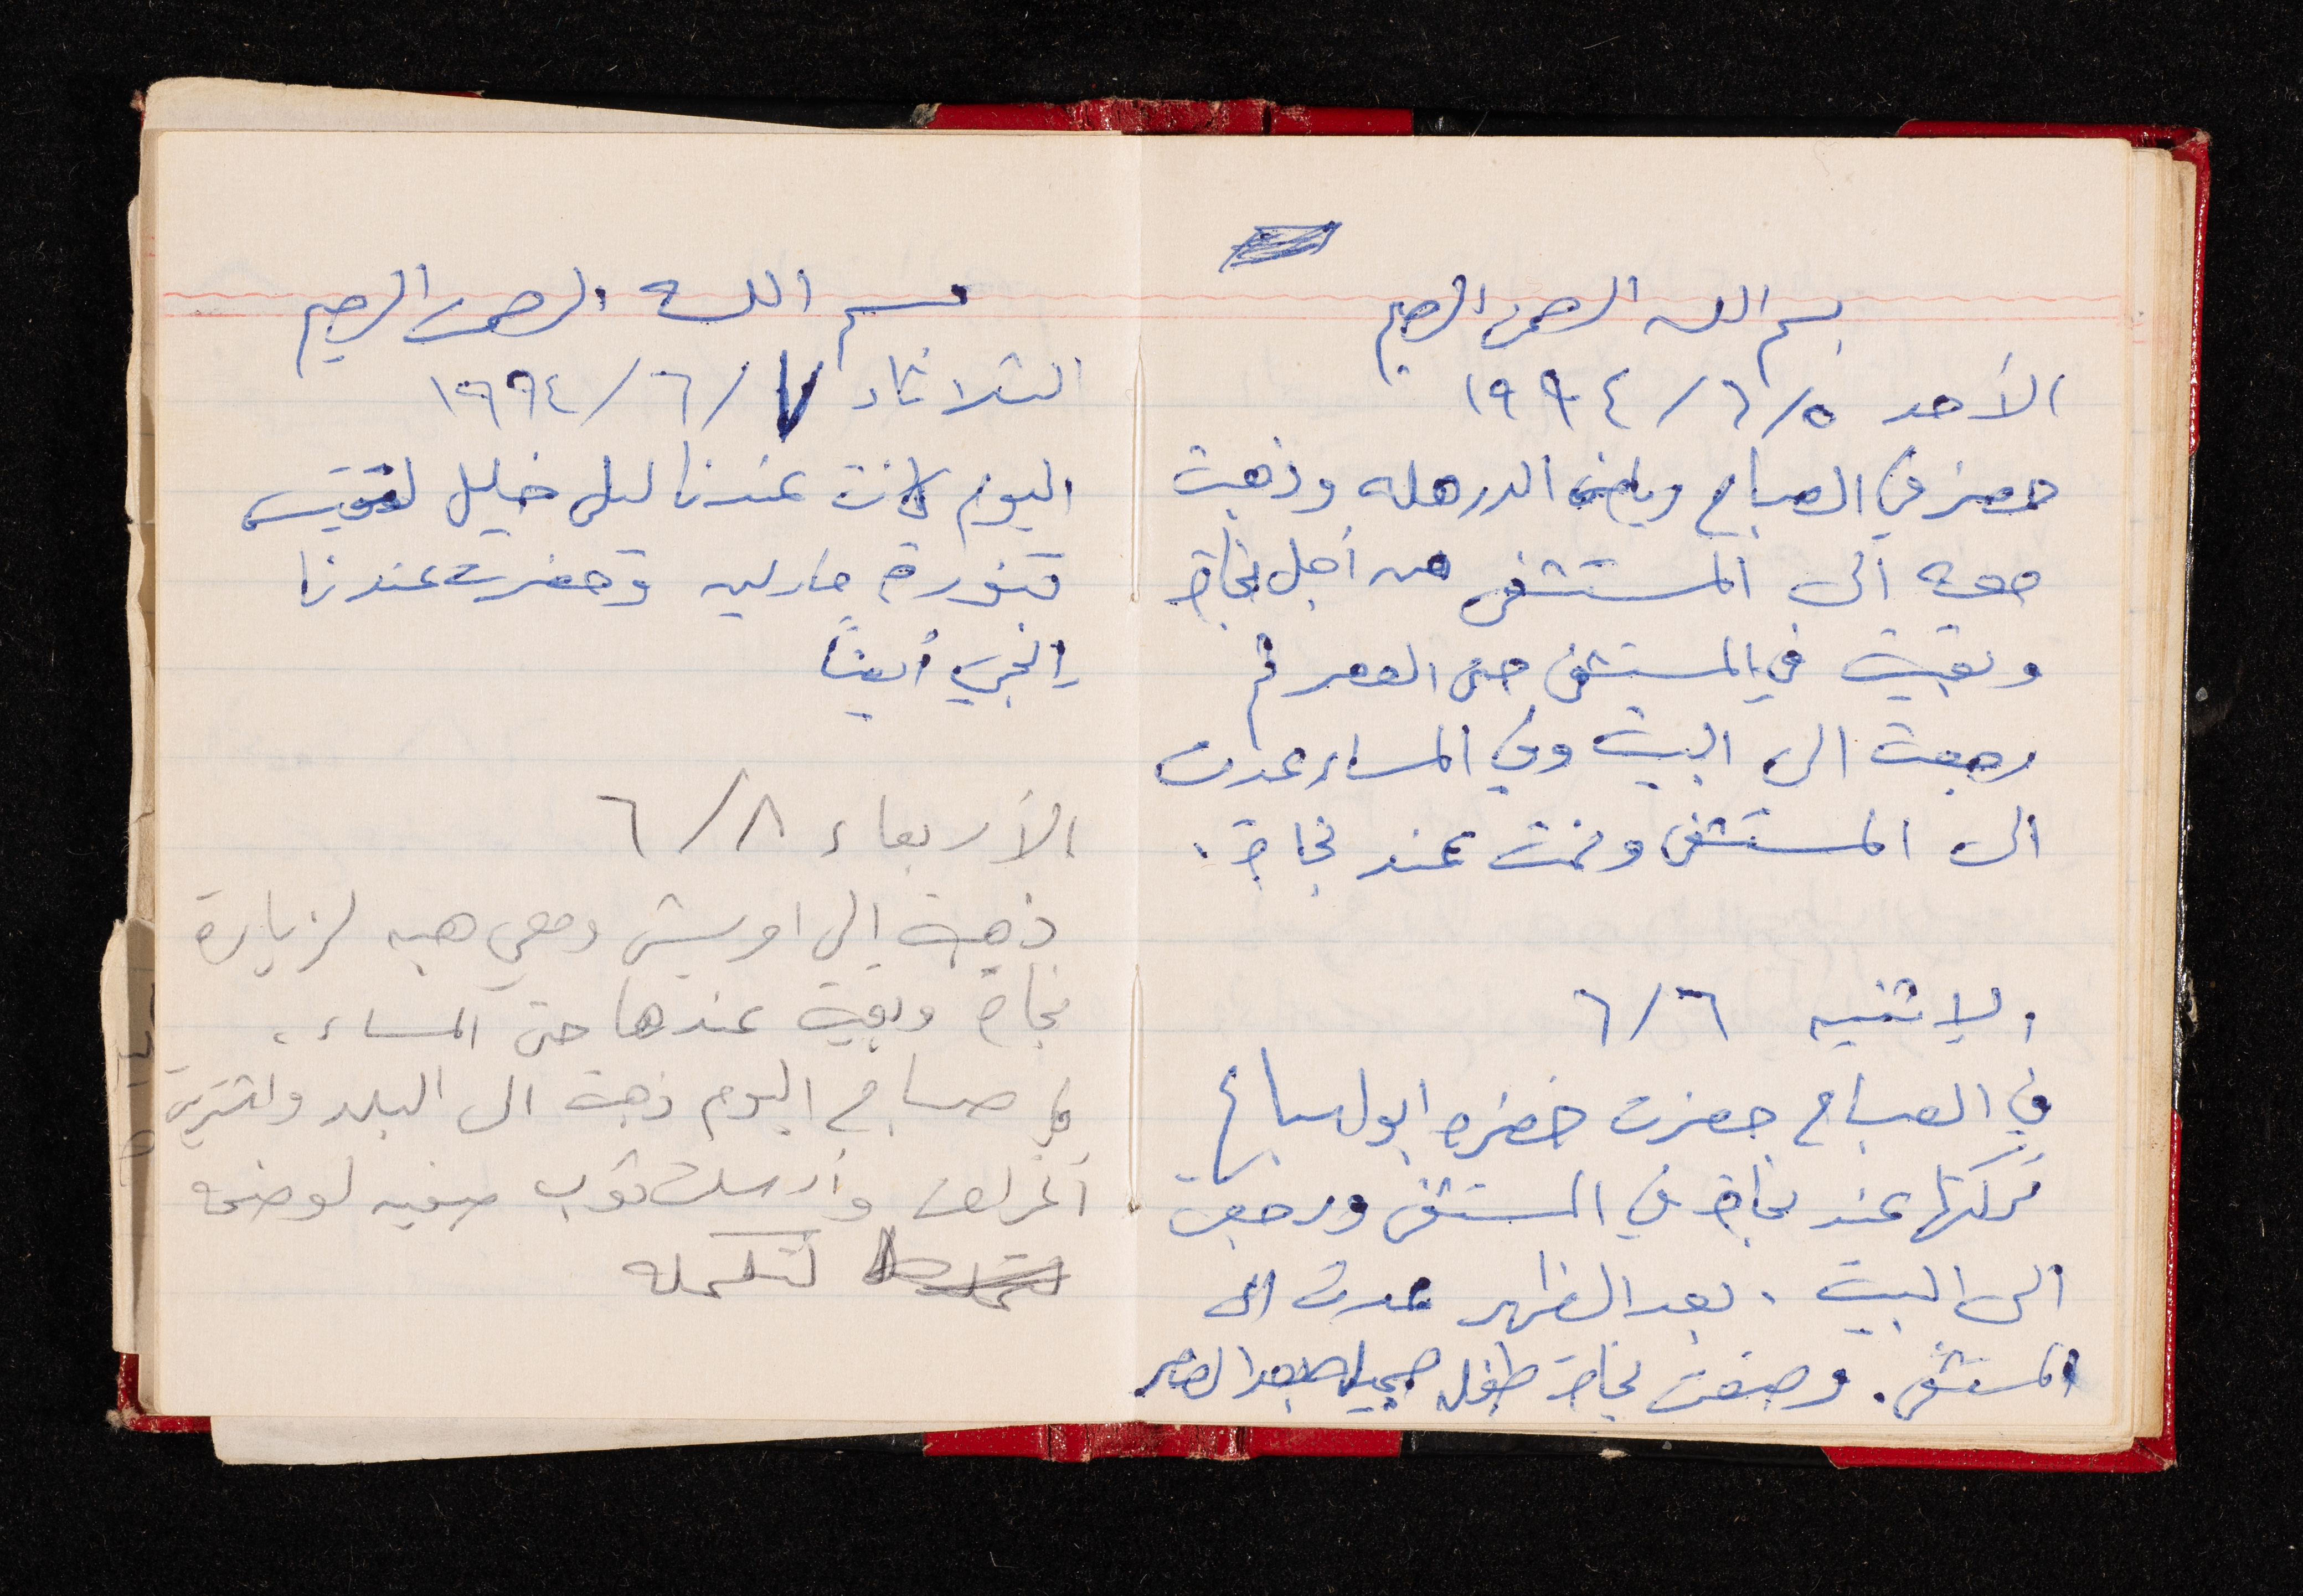 بسم الله الرحمن الرحيم
الأحد ٥/٦/١٩٩٤
حضر في الصباح رياض الدرهله وذهبت
معه الى المستشفى من أجل نجاة
وبقيت في المستشفى حتى العصر ثم
رجعت الى البيت وفي المساء عدت
الى المستشفى ونمت عند نجاة.
الاثنين ٦/٦
في الصباح حضرت خضره ابو لسباع
تركتها عند نجاة في المستشفى ورجعت
الى البيت. بعد الظهر عدت الى
المستشفى. وضعت نجاة طفل جميل بعد العصر
بسم الله الرحمن الرحيم
الثلاثاء ٧/٦/١٩٩٤
اليوم كانت عندنا ليلى خليل
تنورة مارليه وحضرت عندنا
أيضاً
الأربعاء ٨/٦
ذهبت إلى ومعي هبه لزيارة
نجاة وبقيت عندها حتى المساء.
في صباح اليوم ذهبت الى البلد واشتريت
أغراض وأرسلت ثوب صفيه لوضحه
لتكمله